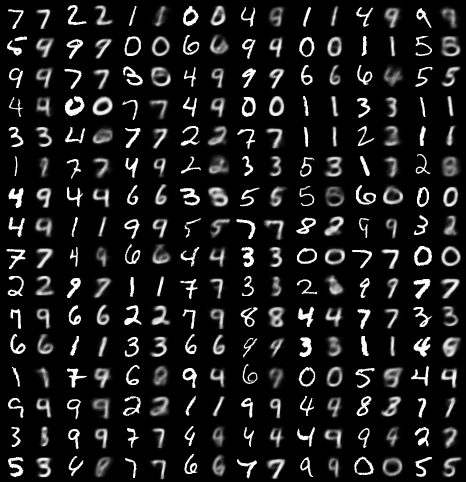 7 7 2 2 1 1 0 0 4 9 1 1 4 9 9 9
5 9 9 9 0 0 6 6 9 4 0 0 1 1 5 5
9 9 7 7 3 4 9 9 9 6 6 6 4 5 5
4 9 0 0 7 7 4 9 0 0 1 1 3 3 1 1
3 3 4 7 7 2 2 7 7 1 1 2 2 1 1
1 1 7 7 4 9 2 2 3 3 5 3 1 7 2 8
4 9 4 4 6 6 3 8 5 5 5 6 0 0 0
4 9 1 1 9 9 5 5 7 7 8 2 9 9 3 2
7 7 4 9 6 6 4 4 3 3 0 0 7 7 0 0
2 2 9 7 1 1 7 7 3 3 2 9 9 7 7
7 9 6 6 2 2 7 9 8 8 4 4 7 7 3 3
6 6 1 1 3 3 6 6 9 9 3 3 1 1 4
1 1 7 9 6 8 9 4 6 9 0 0 5 9 4 4
9 9 9 9 2 2 1 1 9 9 4 9 8 3 7 7
3 3 9 9 7 7 4 9 4 4 4 9 9 4 2 7
5 3 4 8 7 7 6 6 7 7 9 9 0 0 5 5